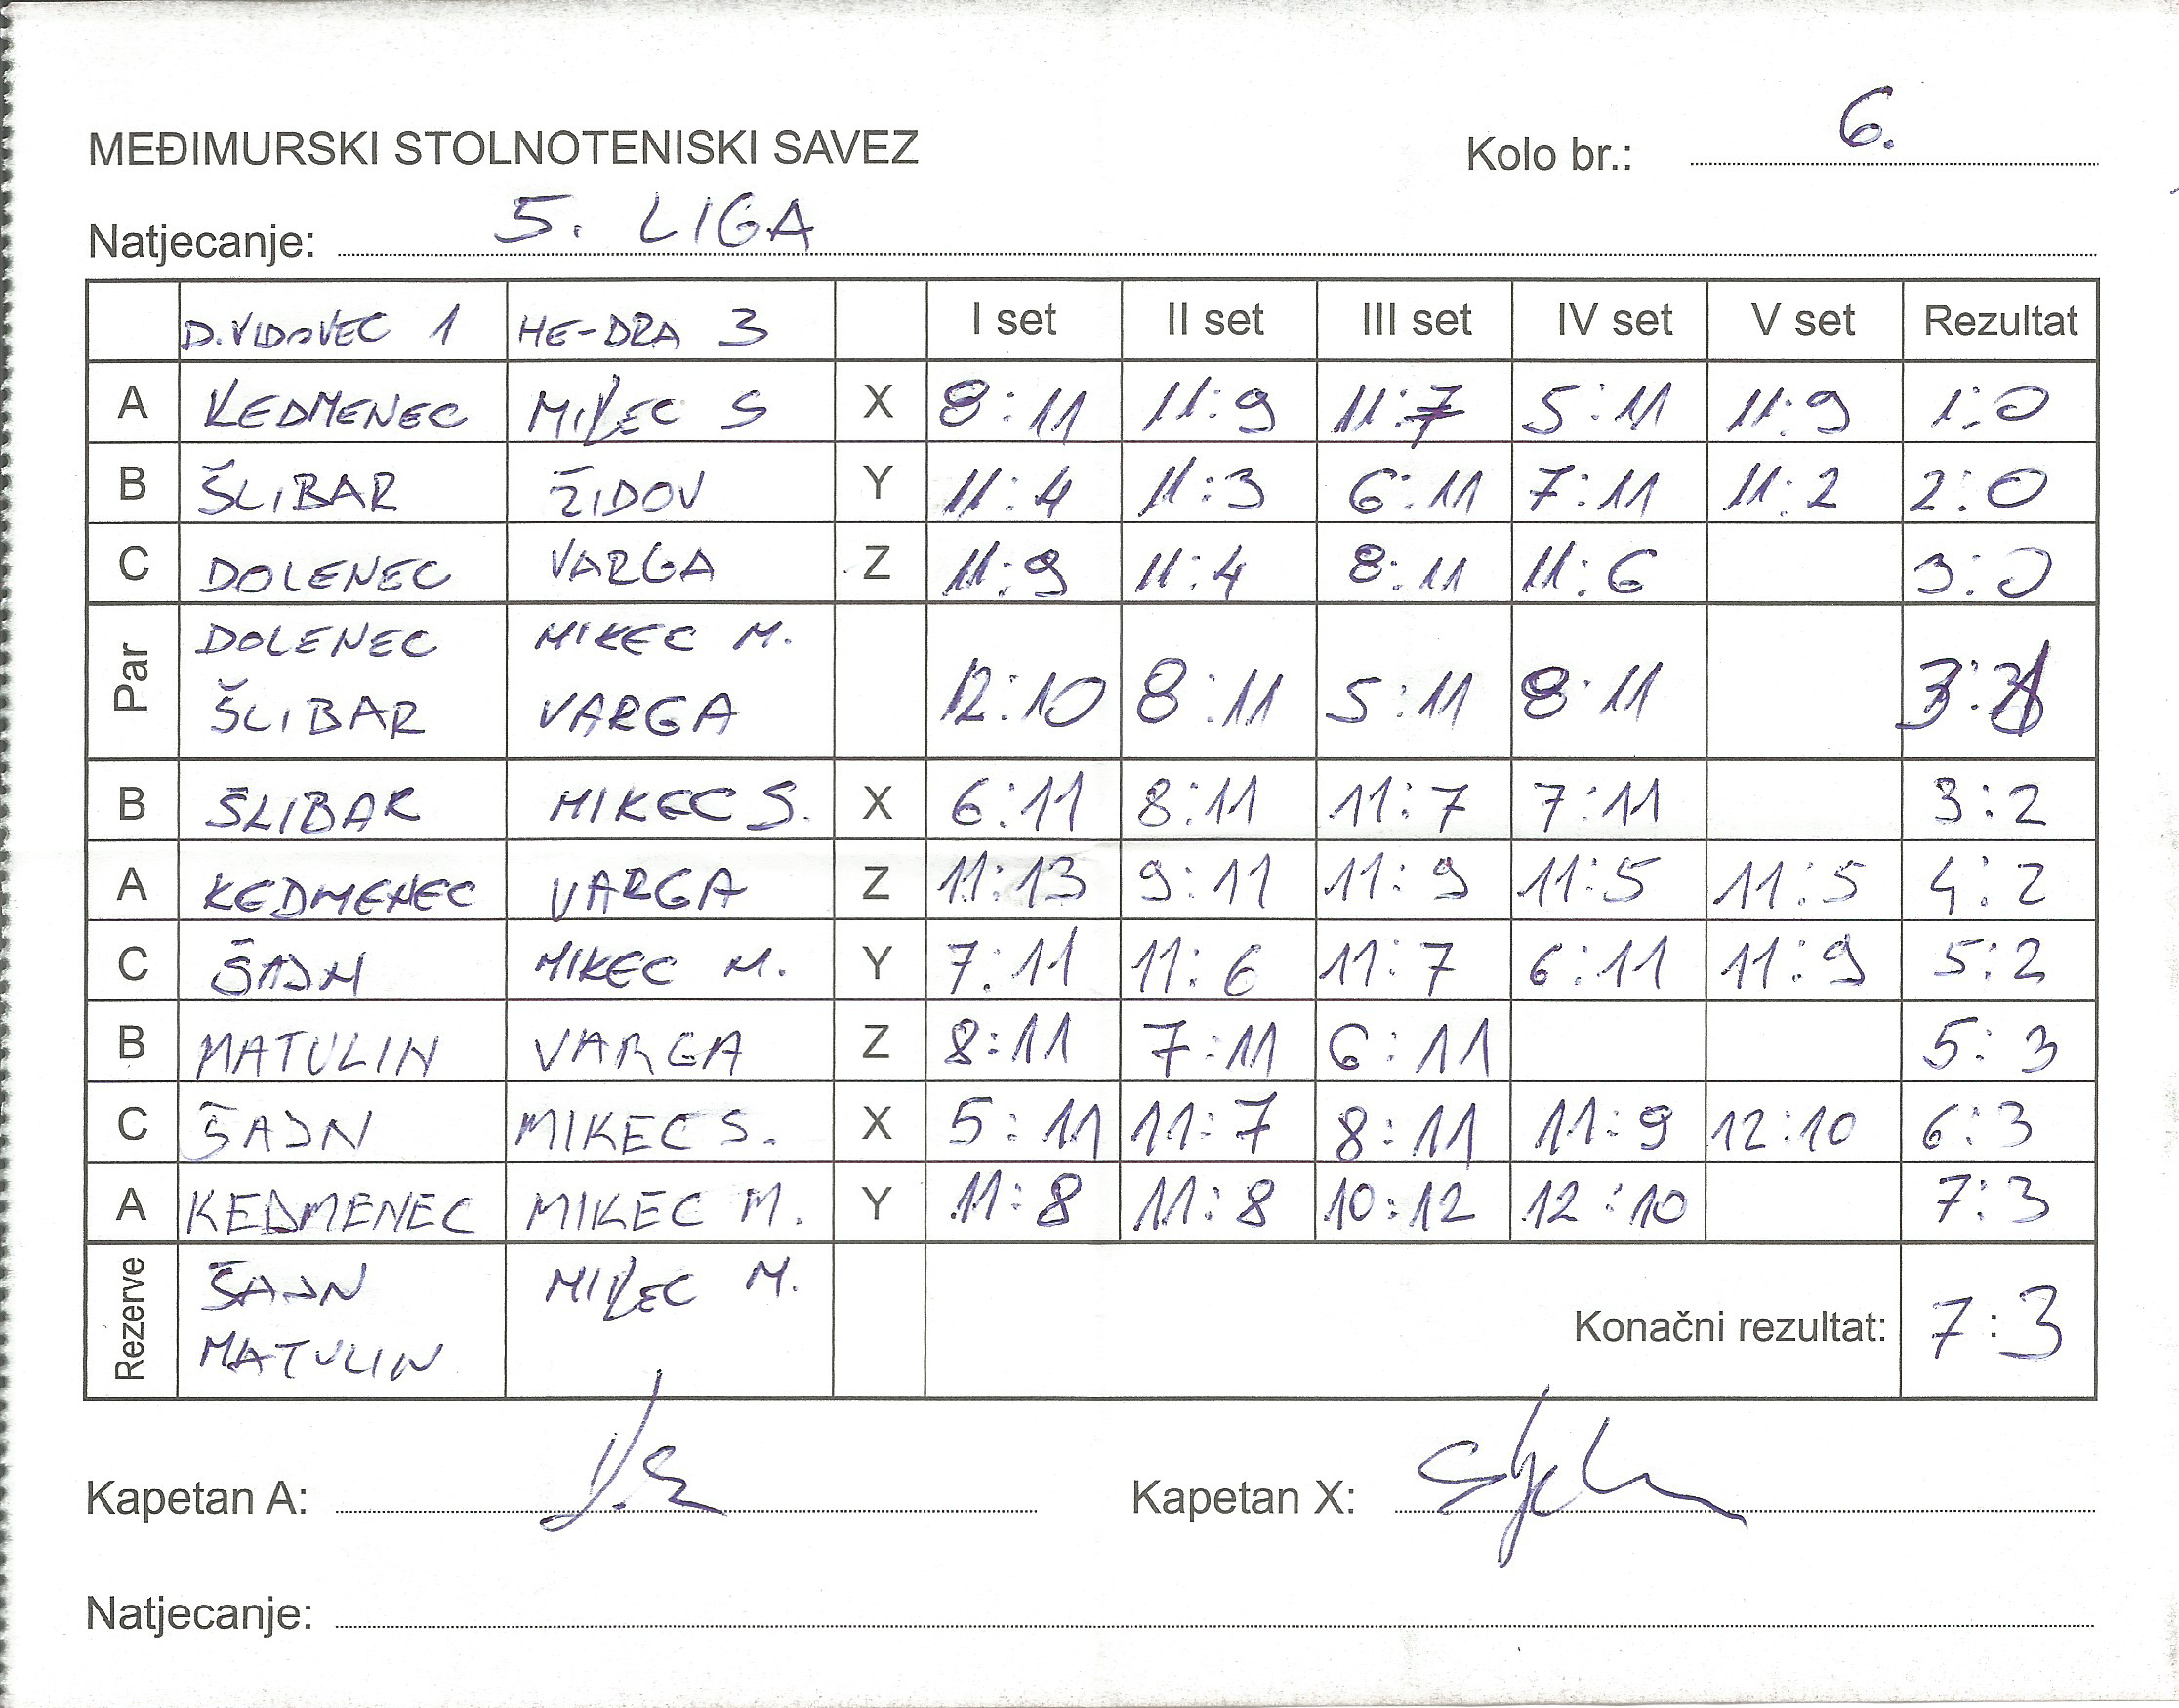 MEĐIMURSKI STOLNOTENISKI SAVEZ Kolo br.: 6.
Natjecanje: 5. LIGA
D.VIDOVEC 1 HE-DRA 3 I set II set III set IV set V set Rezultat
A KEDMENEC MIKEC S X 8:11 11:9 11:7 5:11 11:9 1:0
B ŠLIBAR ŽIDOV Y 11:4 11:3 6:11 7:11 11:2 2:0
C DOLENEC VARGA Z 11:9 11:4 8:11 11:6 3:0
Par DOLENEC MIKEC M.
ŠLIBAR VARGA 12:10 8:11 5:11 8:11 3:1
B ŠLIBAR MIKEC S. X 6:11 8:11 11:7 7:11 3:2
A KEDMENEC VARGA Z 11:13 9:11 11:9 11:5 11:5 4:2
C ŠAJN MIKEC M. Y 7:11 11:6 11:7 6:11 11:9 5:2
B MATULIN VARGA Z 8:11 7:11 6:11 5:3
C ŠAJN MIKEC S. X 5:11 11:7 8:11 11:9 12:10 6:3
A KEDMENEC MIKEC M. Y 11:8 11:8 10:12 12:10 7:3
Rezerve ŠAJN MIKEC M.
MATULIN Konačni rezultat: 7:3
Kapetan A: Kapetan X:
Natjecanje: